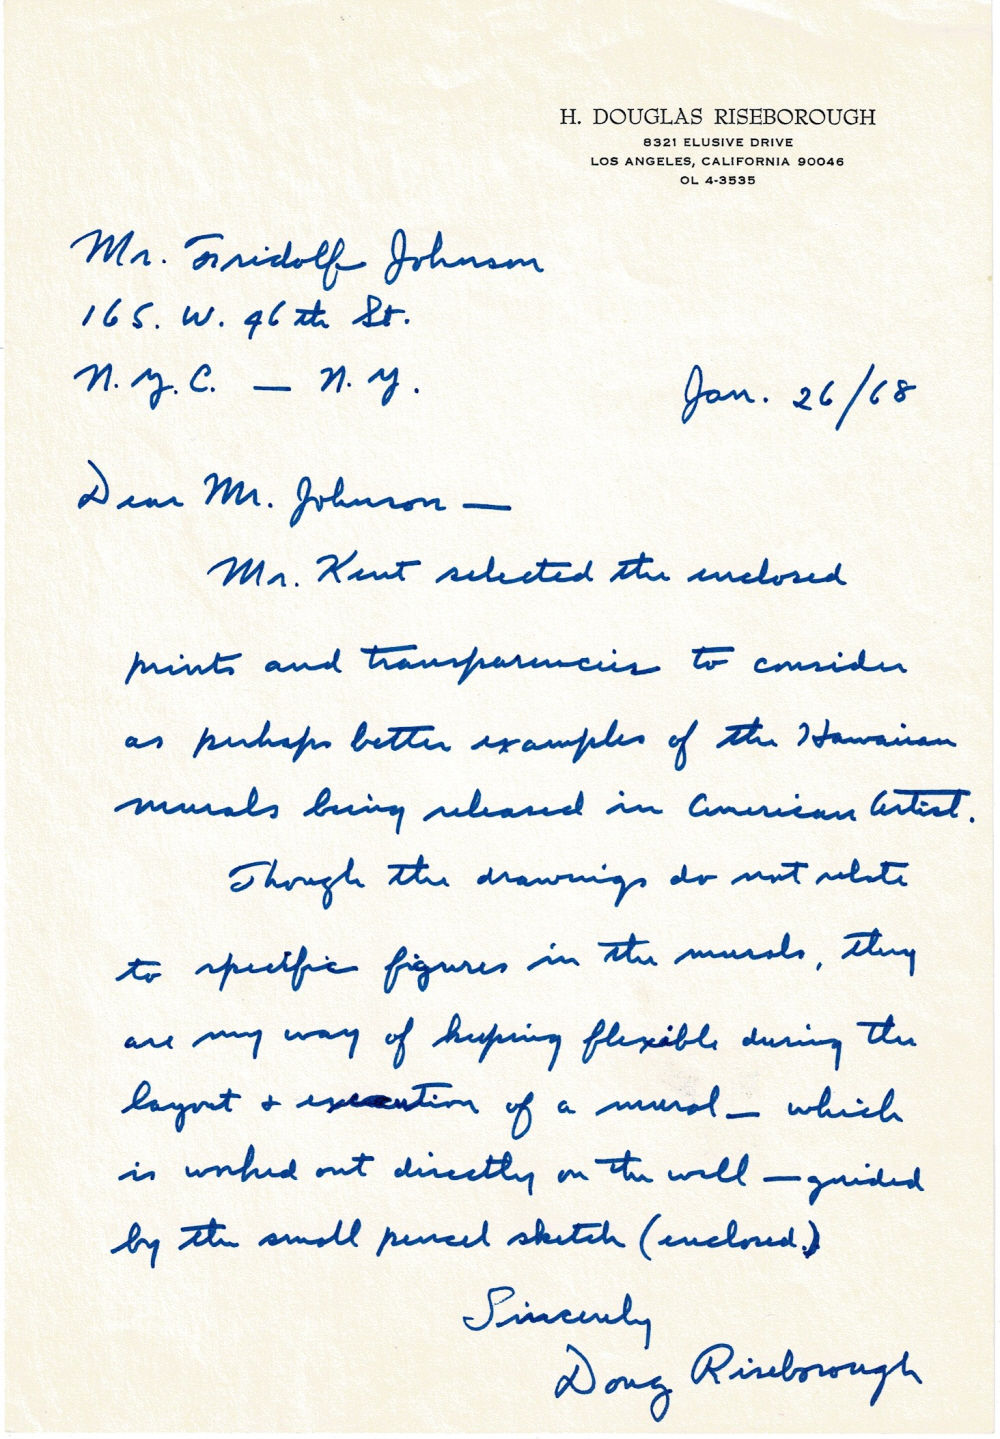 H. DOUGLAS RISEBOROUGH
8321 ELUSIVE DRIVE
LOS ANGELES, CALIFORNIA 90046
OL 4-3535
Mr. Fridolf Johnson
165. W. 96th St.
N.Y.C. — N.Y.
Jan. 26/68
Dear Mr. Johnson —
Mr. Kent selected the enclosed
prints and transparencies to consider
as perhaps better examples of the Hawaiian
murals being released in American Artist.
Though the drawings do not relate
to specific figures in the murals, they
are my way of keeping flexible during the
layout & execution of a mural — which
is worked out directly on the wall — guided
by the small pencil sketch (enclosed.)
Sincerely
Doug Riseborough